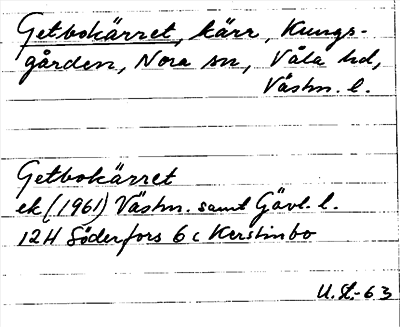 Getbokärret, kärr, Kungs-
gården, Nora sn, Våla hd,
Västm. l.
Getbokärret
ek (1961) Västm. samt Gävl. l.
12H Söderfors 6 c Kerstinbo
U.L.-63